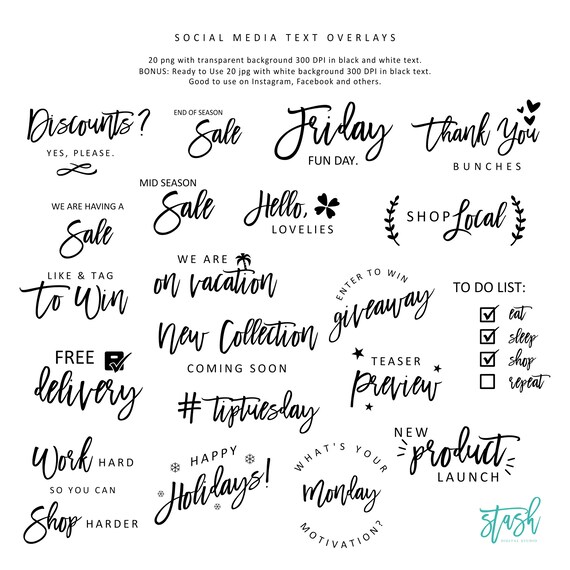 SOCIAL MEDIA TEXT OVERLAYS
20 png with transparent background 300 DPI in black and white text.
BONUS: Ready to Use 20 jpg with white background 300 DPI in black text.
Good to use on Instagram, Facebook and others.
Discounts?
YES, PLEASE.
END OF SEASON
Sale
Friday
FUN DAY.
Thank You
BUNCHES
WE ARE HAVING A
Sale
MID SEASON
Sale
Hello,
LOVELIES
SHOP Local
LIKE & TAG
to Win
WE ARE
on vacation
ENTER TO WIN
giveaway
TO DO LIST:
eat
sleep
shop
repeat
New Collection
COMING SOON
FREE
delivery
TEASER
preview
#tiptuesday
NEW
product
LAUNCH
Work HARD
SO YOU CAN
Shop HARDER
HAPPY
Holidays!
WHAT'S YOUR
Monday
MOTIVATION?
stash